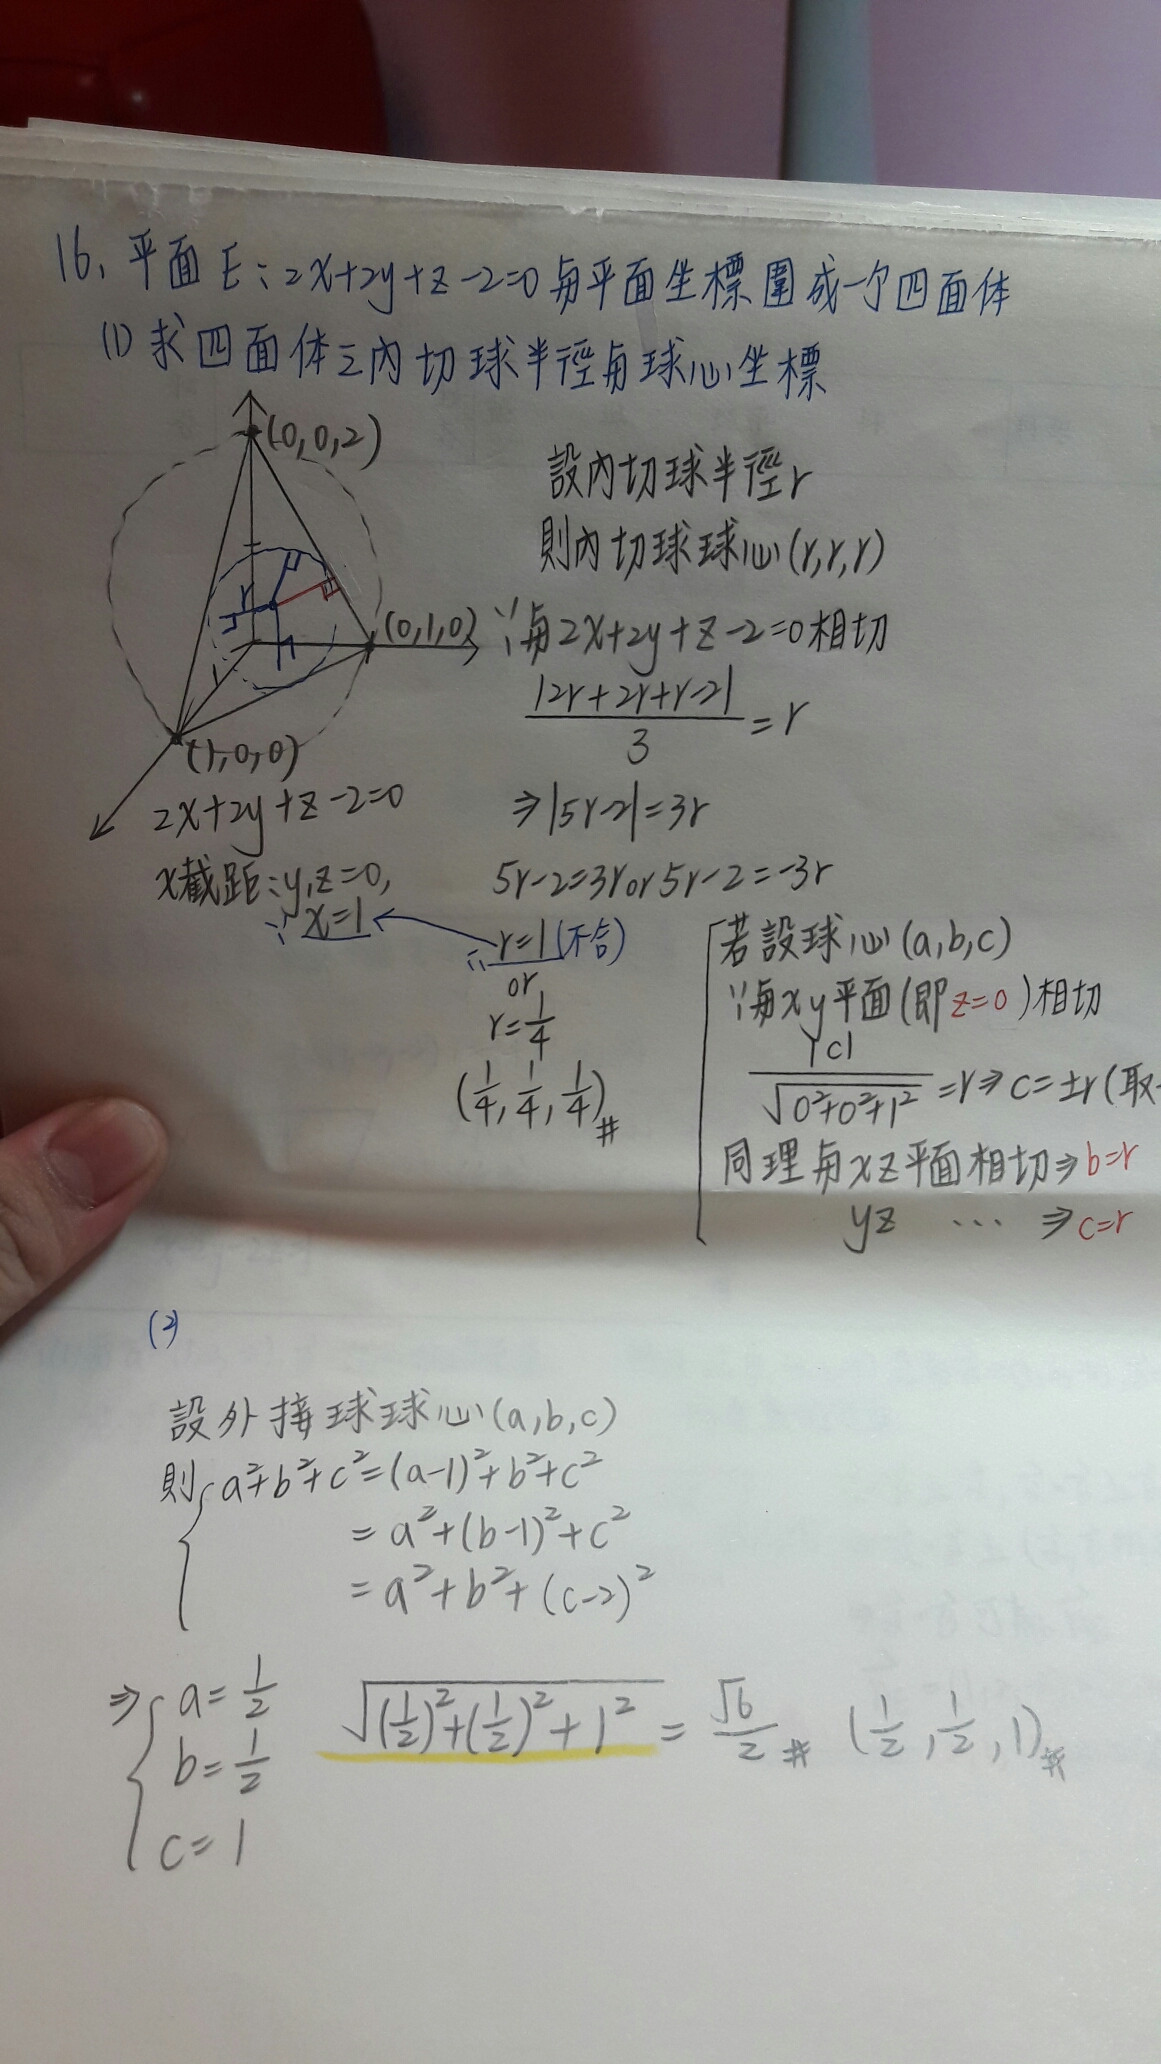 16. 平面E:2x+2y+z-2=0與平面坐標圍成一个四面体
(1) 求四面体之內切球半徑與球心坐標
(0,0,2)
r
(0,1,0)
(1,0,0)
2x+2y+z-2=0
x截距:y,z=0,
∴ x=1
設內切球半徑r
則內切球球心(r,r,r)
∵與2x+2y+z-2=0相切
|2r+2r+r-2|/3 = r
⇒|5r-2|=3r
5r-2=3r or 5r-2=-3r
∴ r=1 (不合)
or
r=1/4
(1/4, 1/4, 1/4)#
若設球心(a,b,c)
∵與xy平面(即z=0)相切
|c|/√(0²+0²+1²) = r ⇒ c=±r (取
同理與xz平面相切⇒b=r
yz ... ⇒c=r
(2)
設外接球球心(a,b,c)
則{a²+b²+c²=(a-1)²+b²+c²
=a²+(b-1)²+c²
=a²+b²+(c-2)²
⇒{a=1/2
b=1/2
c=1
√((1/2)²+(1/2)²+1²) = √6/2 # (1/2, 1/2, 1)#